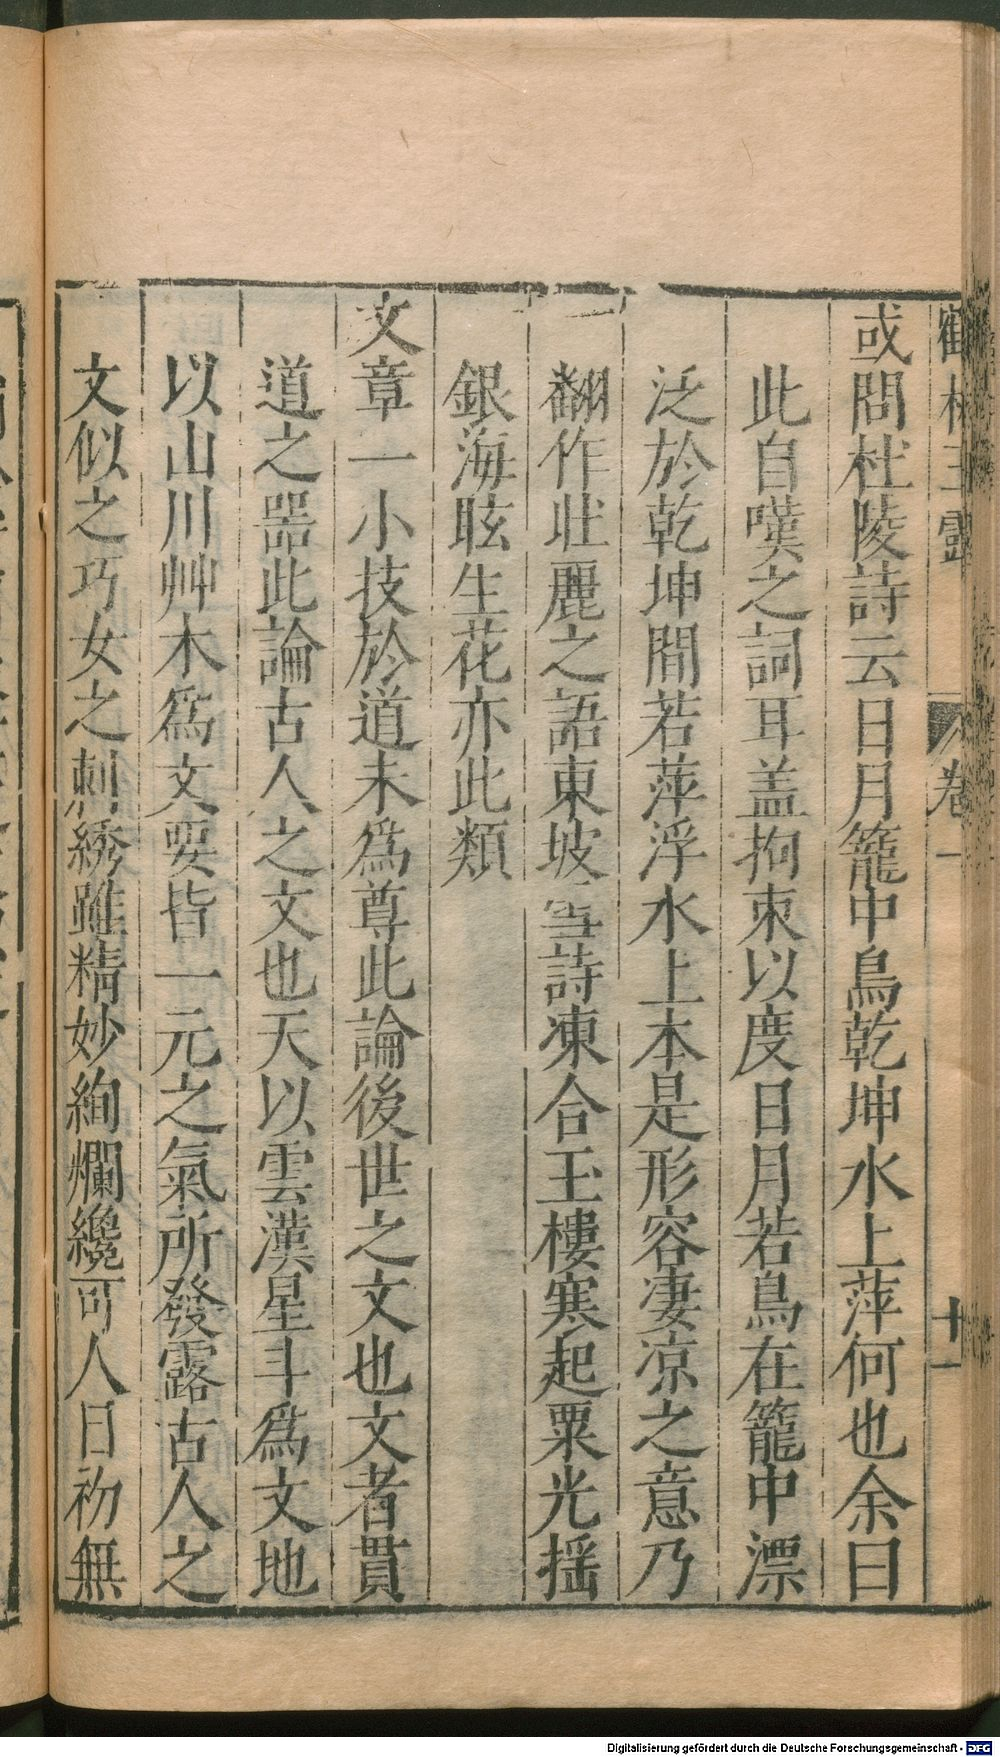 鶴林玉露 卷一 十一
或問杜陵詩云日月籠中鳥乾坤水上萍何也余曰
此自嘆之詞耳盖拘束以度日月若鳥在籠中漂
泛於乾坤間若萍浮水上本是形容凄凉之意乃
翻作壯麗之語東坡雪詩凍合玉樓寒起粟光揺
銀海眩生花亦此類
文章一小技於道未爲尊此論後世之文也文者貫
道之噐此論古人之文也天以雲漢星斗爲文地
以山川艸木爲文要皆一元之氣所發露古人之
文似之巧女之刺綉雖精妙絢爛纔可人目初無
Digitalisierung gefördert durch die Deutsche Forschungsgemeinschaft - DFG